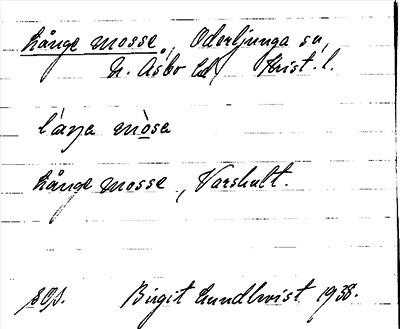 Långe mosse, Oderljunga sn,
N. Åsbo hd, Krist. l.
låŋa mòsa
Långe mosse, Varshult.
Birgit Lundkvist 1938.